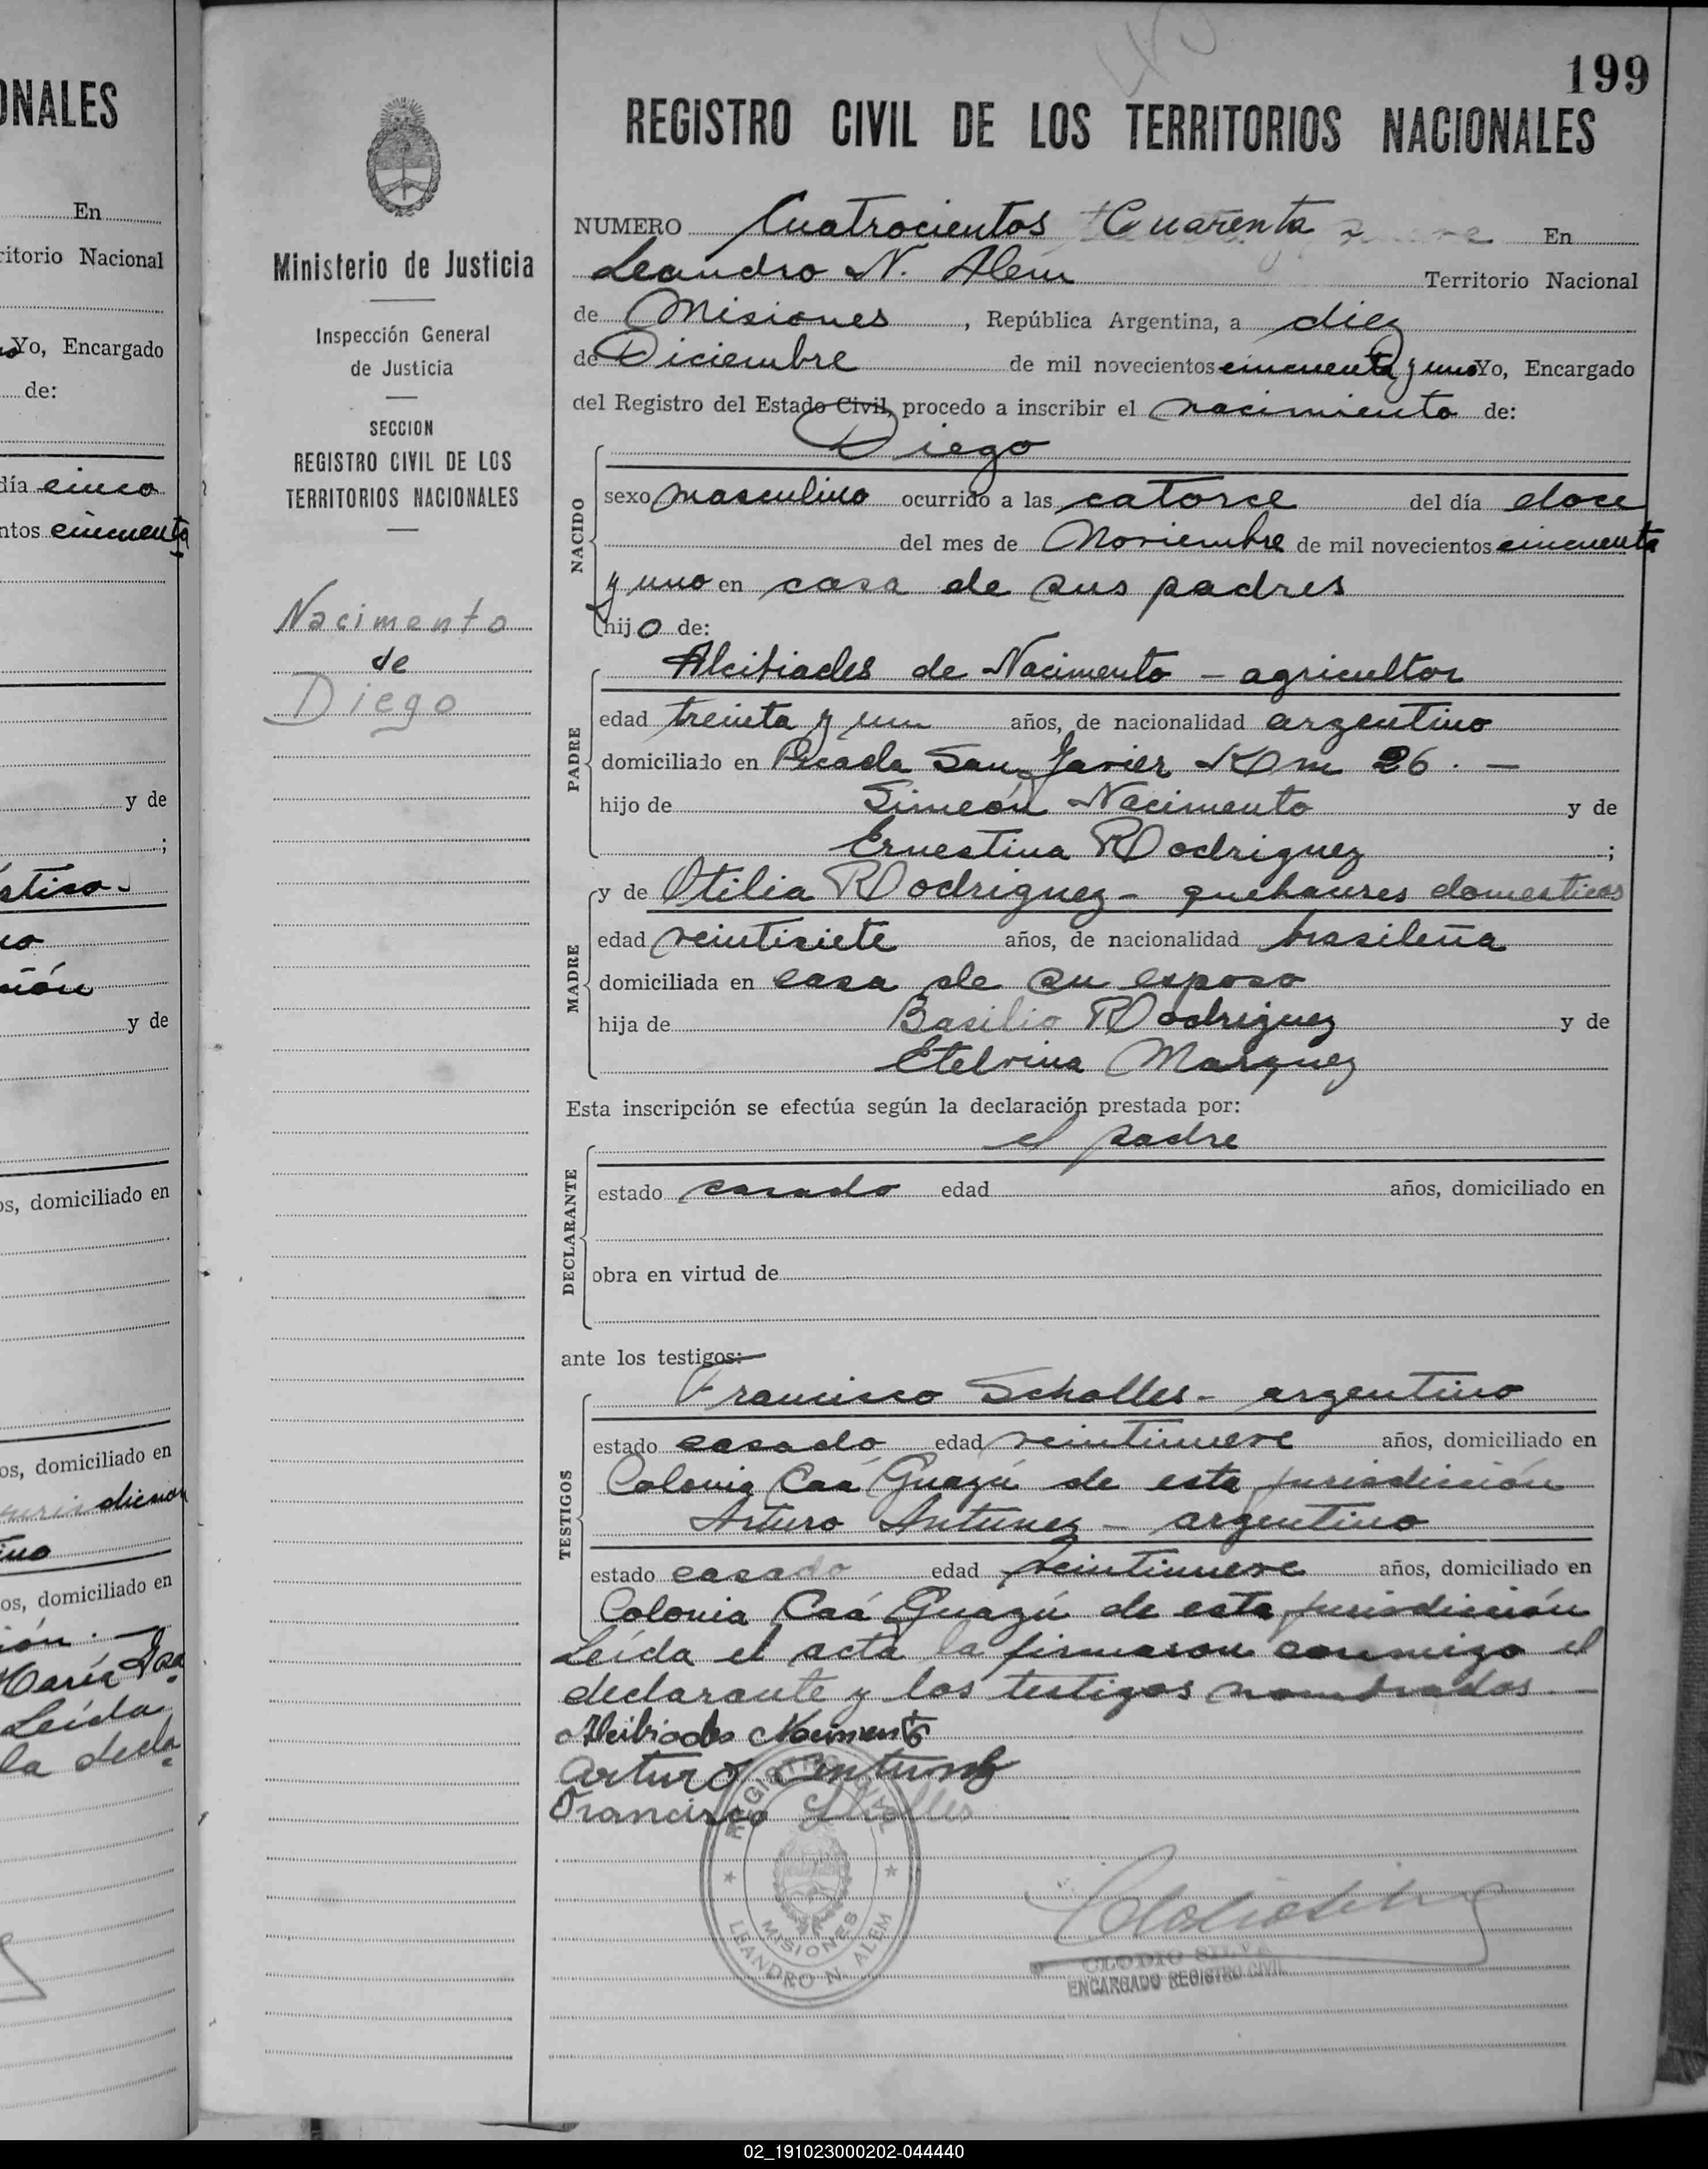 199
REGISTRO CIVIL DE LOS TERRITORIOS NACIONALES
NUMERO Cuatrocientos Cuarenta En
Leandro N. Alem Territorio Nacional
de Misiones, República Argentina, a diez
de Diciembre de mil novecientos cincuenta y uno Yo, Encargado
del Registro del Estado Civil, procedo a inscribir el nacimiento de:
Diego
NACIDO
sexo masculino ocurrido a las catorce del día doce
del mes de Noviembre de mil novecientos cincuenta
y uno en casa de sus padres
hijo de:
PADRE
Alcibiades de Nacimento - agricultor
edad treinta y un años, de nacionalidad argentino
domiciliado en Picada San Javier Km 26. —
hijo de Simeón Nacimento y de
Ernestina Rodriguez ;
MADRE
y de Otilia Rodriguez - quehaceres domesticos
edad veintisiete años, de nacionalidad brasileña
domiciliada en casa de su esposo
hija de Basilio Rodriguez y de
Etelvina Marquez
Esta inscripción se efectúa según la declaración prestada por:
el padre
DECLARANTE
estado casado edad años, domiciliado en
obra en virtud de
ante los testigos:
TESTIGOS
Francisco Scholles - argentino
estado casado edad veintinueve años, domiciliado en
Colonia Caá Guazú de esta jurisdicción
Arturo Antunez - argentino
estado casado edad veintinueve años, domiciliado en
Colonia Caá Guazú de esta jurisdicción
Leída el acta la firmaron conmigo el
declarante y los testigos nombrados. —
Alcibiades Nacimento
Arturo Antunez
Francisco Scholles
REGISTRO CIVIL
MISIONES
LEANDRO N. ALEM
CLODIO SILVA
ENCARGADO REGISTRO CIVIL
Ministerio de Justicia
Inspección General
de Justicia
SECCION
REGISTRO CIVIL DE LOS
TERRITORIOS NACIONALES
Nacimento
de
Diego
ONALES
En
ritorio Nacional
Yo, Encargado
de:
día cinco
ntos cincuenta
y de
;
y de
os, domiciliado en
os, domiciliado en
os, domiciliado en
Leída
02_191023000202-044440